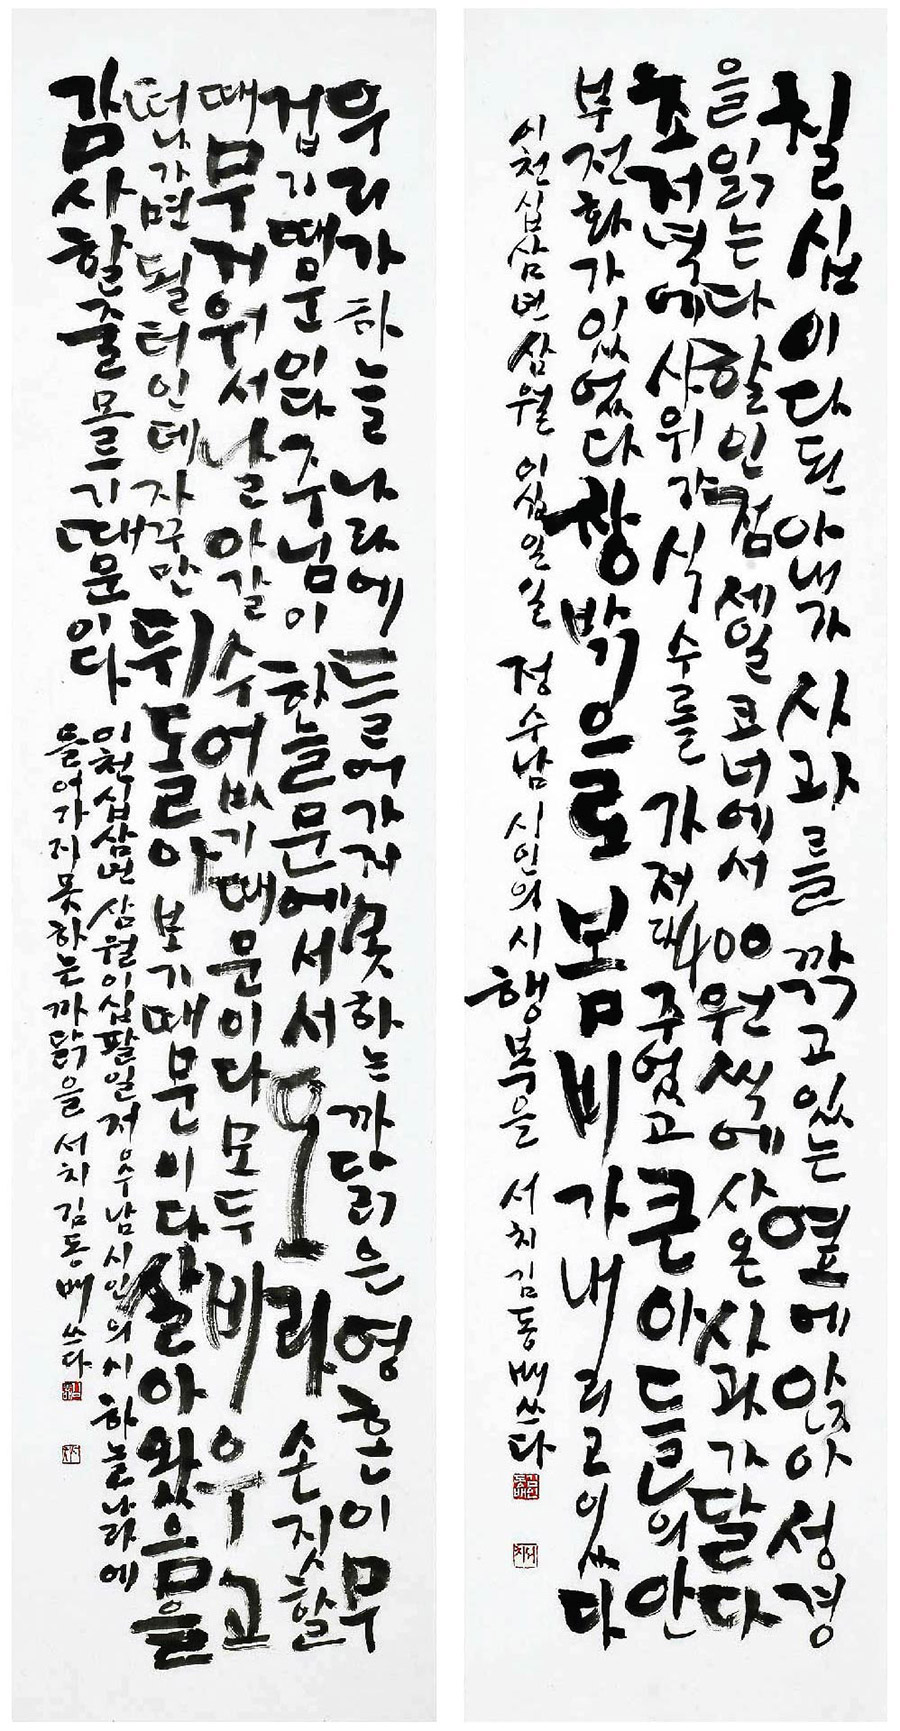 칠십이 다 된 아내가 사과를 깎고 있는 옆에 앉아 성경
을 읽는다 할인점 세일 코너에서 400원씩에 사온 사과가 달다
초저녁에 사위가 식수를 가져다 주었고 큰아들의 안
부전화가 있었다 창밖으로 봄비가 내리고 있다
이천십삼년 삼월 이십일일 정수남 시인의 시 행복을 서치 김동배 쓰다
우리가 하늘나라에 들어가지 못하는 까닭은 영혼이 무
겁기 때문이다 주님이 하늘문에 서서 오라 손짓할
때 무거워서 날아갈 수 없기 때문이다 모두 비우고
떠나가면 될 터인데 자꾸만 뒤돌아보기 때문이다 살아왔음을
감사할 줄 모르기 때문이다
이천십삼년 삼월 이십팔일 정수남 시인의 시 하늘나라에
들어가지 못하는 까닭을 서치 김동배 쓰다